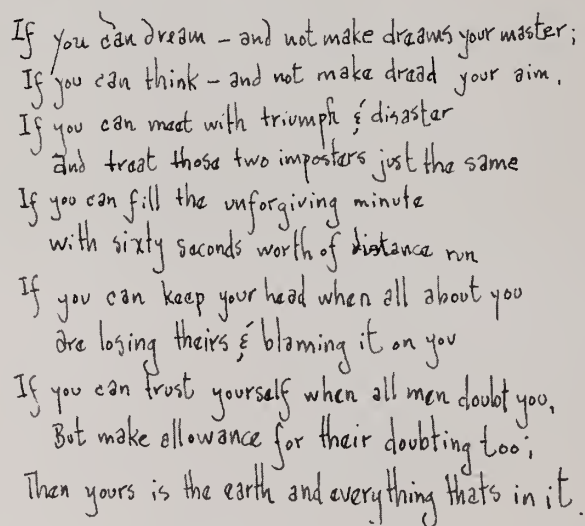 If you can dream – and not make dreams your master;
If you can think – and not make dread your aim,
If you can meet with triumph & disaster
and treat those two imposters just the same
If you can fill the unforgiving minute
with sixty seconds worth of distance run
If you can keep your head when all about you
are losing theirs & blaming it on you
If you can trust yourself when all men doubt you,
But make allowance for their doubting too;
Then yours is the earth and everything thats in it.